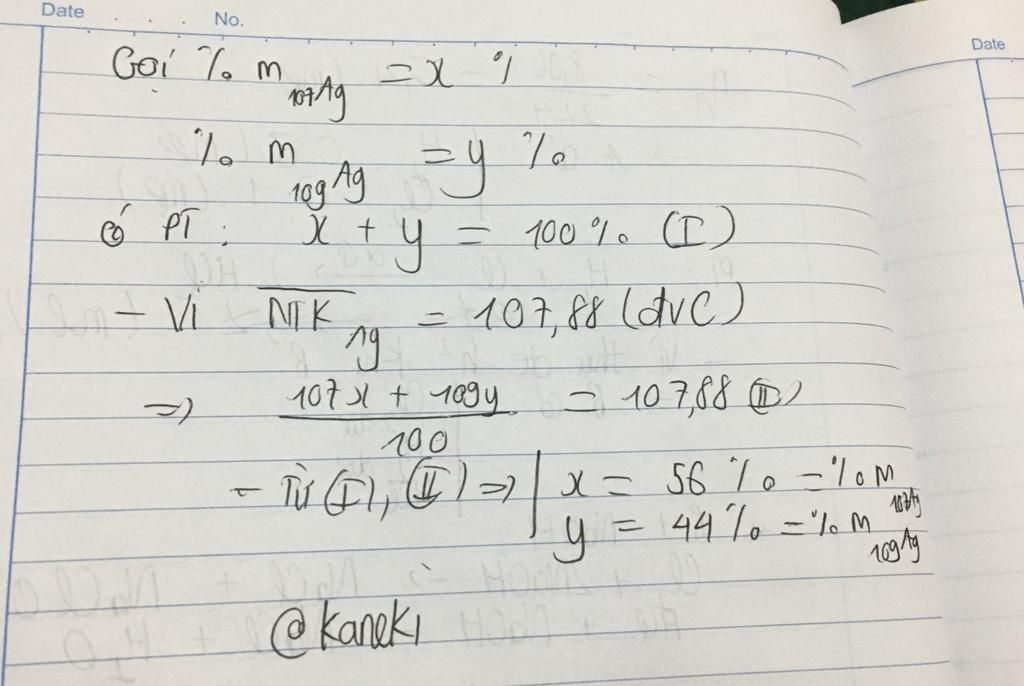 Date No.
Date
Gọi % m 107Ag = x %
% m 109Ag = y %
Có PT: x + y = 100% (I)
- Vì NTK Ag = 107,88 (đvC)
=> 107x + 109y / 100 = 107,88 (II)
- Từ (I), (II) => | x = 56 % = % m 107Ag
y = 44 % = % m 109Ag
@kaneki